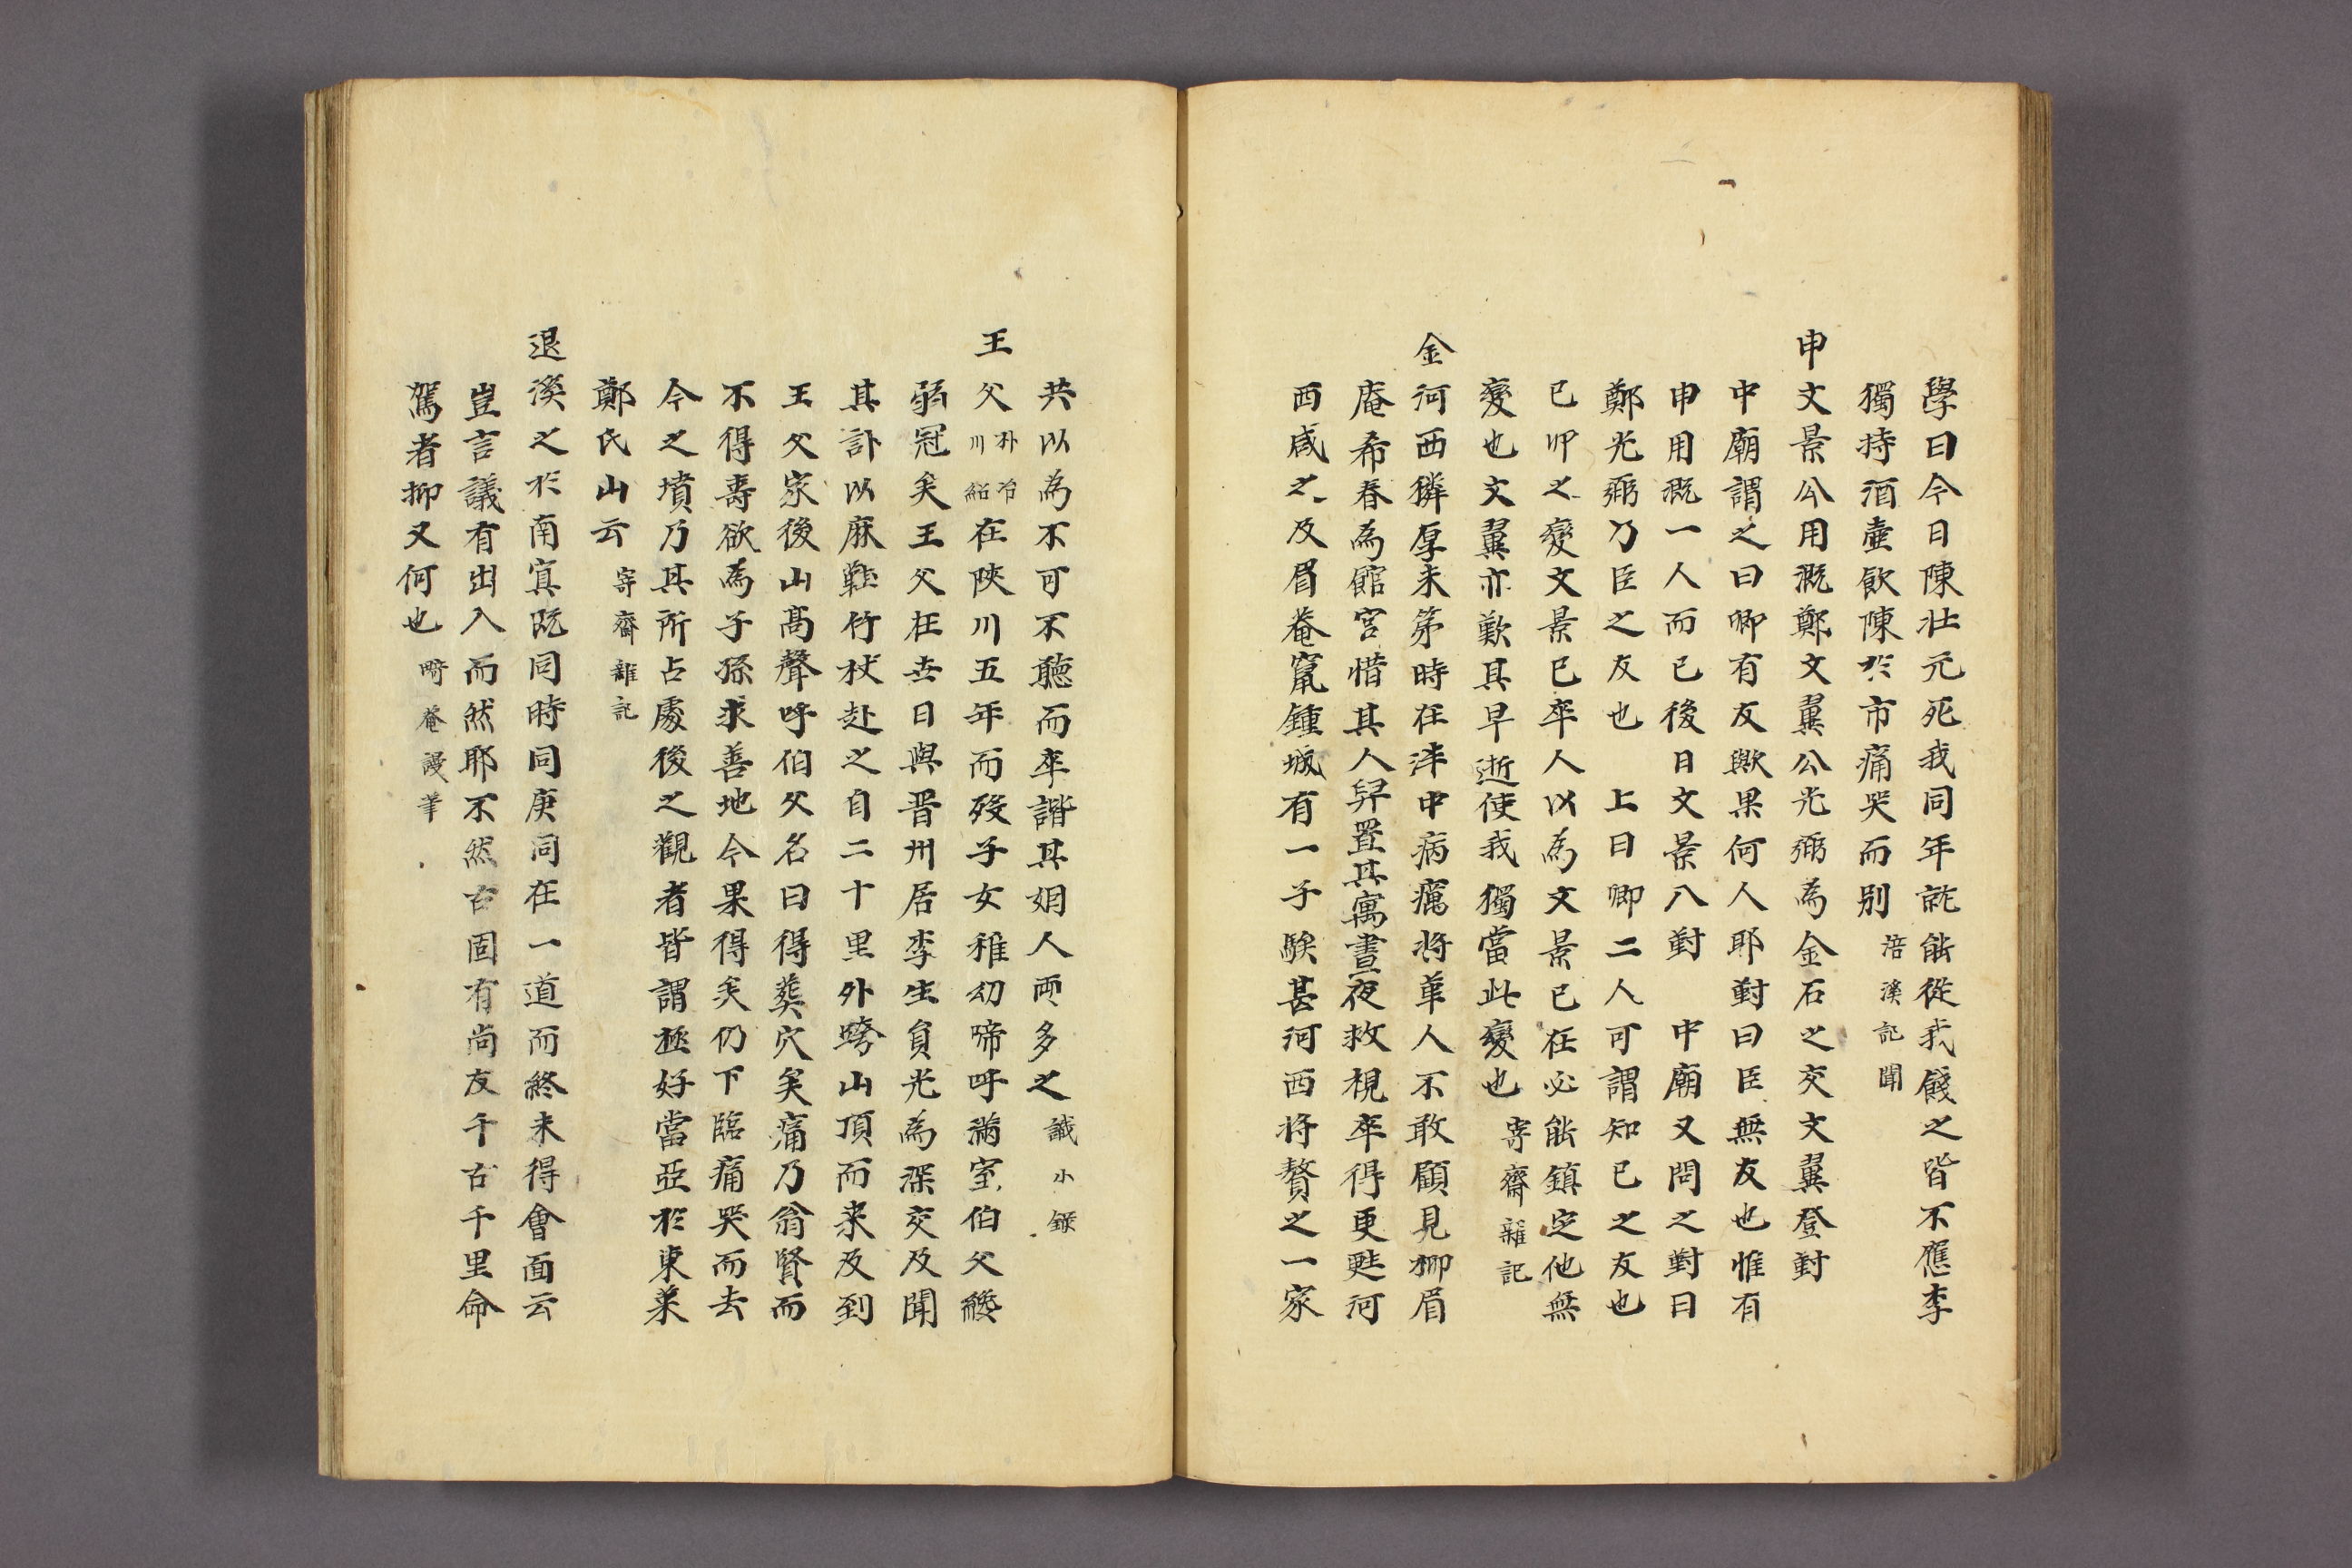 學曰今日陳壯元死我同年誰能從我餞之皆不應李
獨持酒壷飮陳於市痛哭而別 涪溪記聞
申文景公用漑鄭文翼公光弼為金石之交文翼登對
中廟謂之曰卿有友歟果何人耶對曰臣無友也惟有
申用漑一人而已後日文景入對 中廟又問之對曰
鄭光弼乃臣之友也 上曰卿二人可謂知已之友也
已卯之變文景已卒人以為文景已在必能鎮定他無
變也文翼亦歎其早逝使我獨當此變也 寄齋雜記
金河西獜厚未第時在泮中病癘將革人不敢顧見柳眉
庵希春為館官惜其人舁置其寓晝夜救視卒得更甦河
西咸之及眉菴竄鍾城有一子騃甚河西將贅之一家
共以為不可不聽而卒諧其姻人両多之 識小錄
王父 朴冷川紹 在陜川五年而歿子女稚幼啼呼滿室伯父纔
弱冠矣王父在世日與晋州居李生員光為深交及聞
其訃以麻鞋竹杖赴之自二十里外跨山頂而来及到
王父家後山髙聲呼伯父名曰得葬穴矣痛乃翁賢而
不得壽欲為子孫求善地今果得矣仍下臨痛哭而去
今之墳乃其所占處後之觀者皆謂極好當亞於東萊
鄭氏山云 寄齋雜記
退溪之於南寘既同時同庚同在一道而終未得會面云
豈言議有出入而然耶不然古固有尚友千古千里命
駕者抑又何也 畸菴謾筆